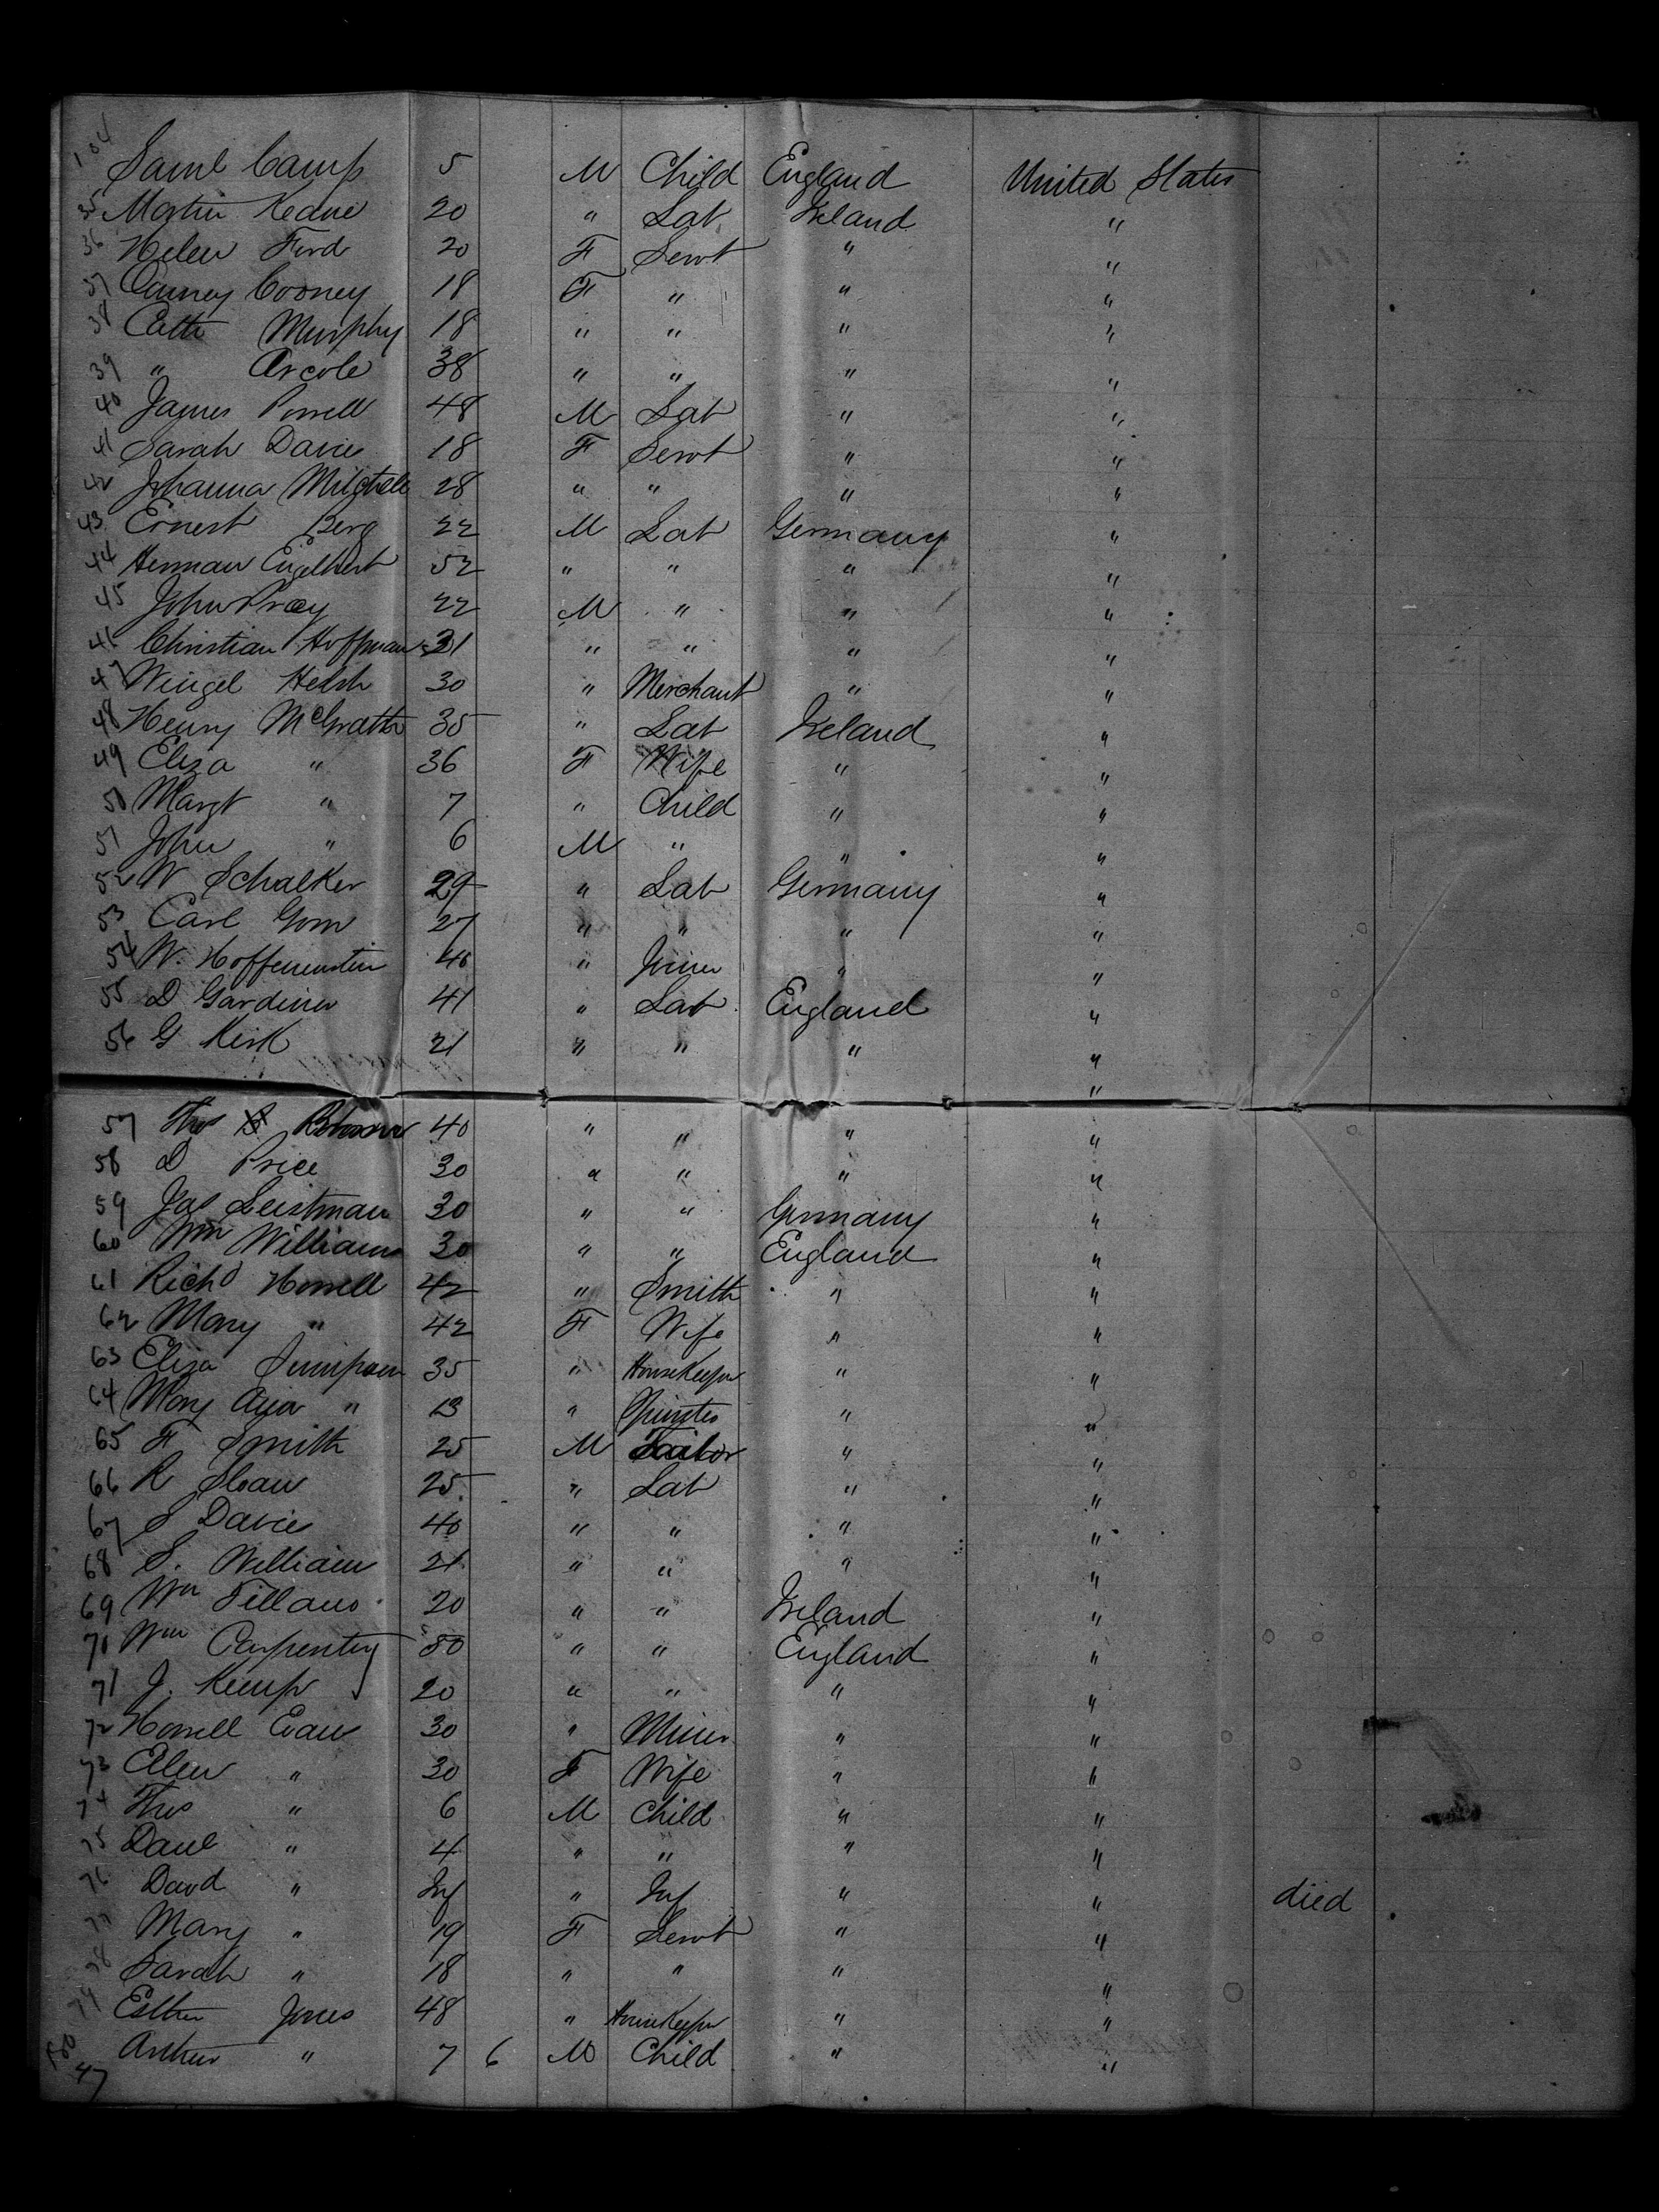 134 Saml Camp 5 M Child England United States
35 Martin Keane 20 " Lab Ireland "
36 Helen Ford 20 F Servt " "
37 Cooney 18 F " " "
38 Cath Murphy 18 " " " "
39 " 38 " " " "
40 James Powell 48 M Lab " "
41 Sarah Davies 18 F Servt " "
42 Johanna Mitchell 28 " " " "
43 Ernest Berg 22 M Lab Germany "
44 Herman Engelhert 52 " " " "
45 John Pracy 22 M " " "
46 Christian Hoffman 31 " " " "
47 30 " Merchant " "
48 Henry McGrath 35 " Lab Ireland "
49 Eliza " 36 F Wife " "
50 Margt " 7 " Child " "
51 John " 6 M " " "
52 W Schalker 29 " Lab Germany "
53 Carl Gorn 27 " " " "
54 W. 40 " Joiner " "
55 D Gardiner 41 " Lab England "
56 G Kirk 21 " " " "
"
57 Thos 40 " " " "
58 D Price 30 " " " "
59 Jas Leistman 30 " " Germany "
60 Wm Williams 30 " " England "
61 Richd Howell 42 " Smith " "
62 Mary " 42 F Wife " "
63 Eliza Simpson 35 " HouseKeeper " "
64 Mary " 13 " Spinster " "
65 F Smith 25 M Tailor " "
66 R Sloan 25 " Lab " "
67 S Davies 40 " " " "
68 S. William 21 " " " "
69 Wm 20 " " Ireland "
70 Wm Carpenter 50 " " England "
71 J. Kemp 20 " " " "
72 Howell Evans 30 " Miner " "
73 Ellen " 30 F Wife " "
74 Thos " 6 M Child " "
75 Danl " 4 " " " "
76 Davd " Inf " Inf " " died
77 Mary " 19 F Servt " "
78 Sarah " 18 " " " "
79 Esther Jones 48 " HouseKeeper " "
180 Arthur " 7 6 M Child " "
47